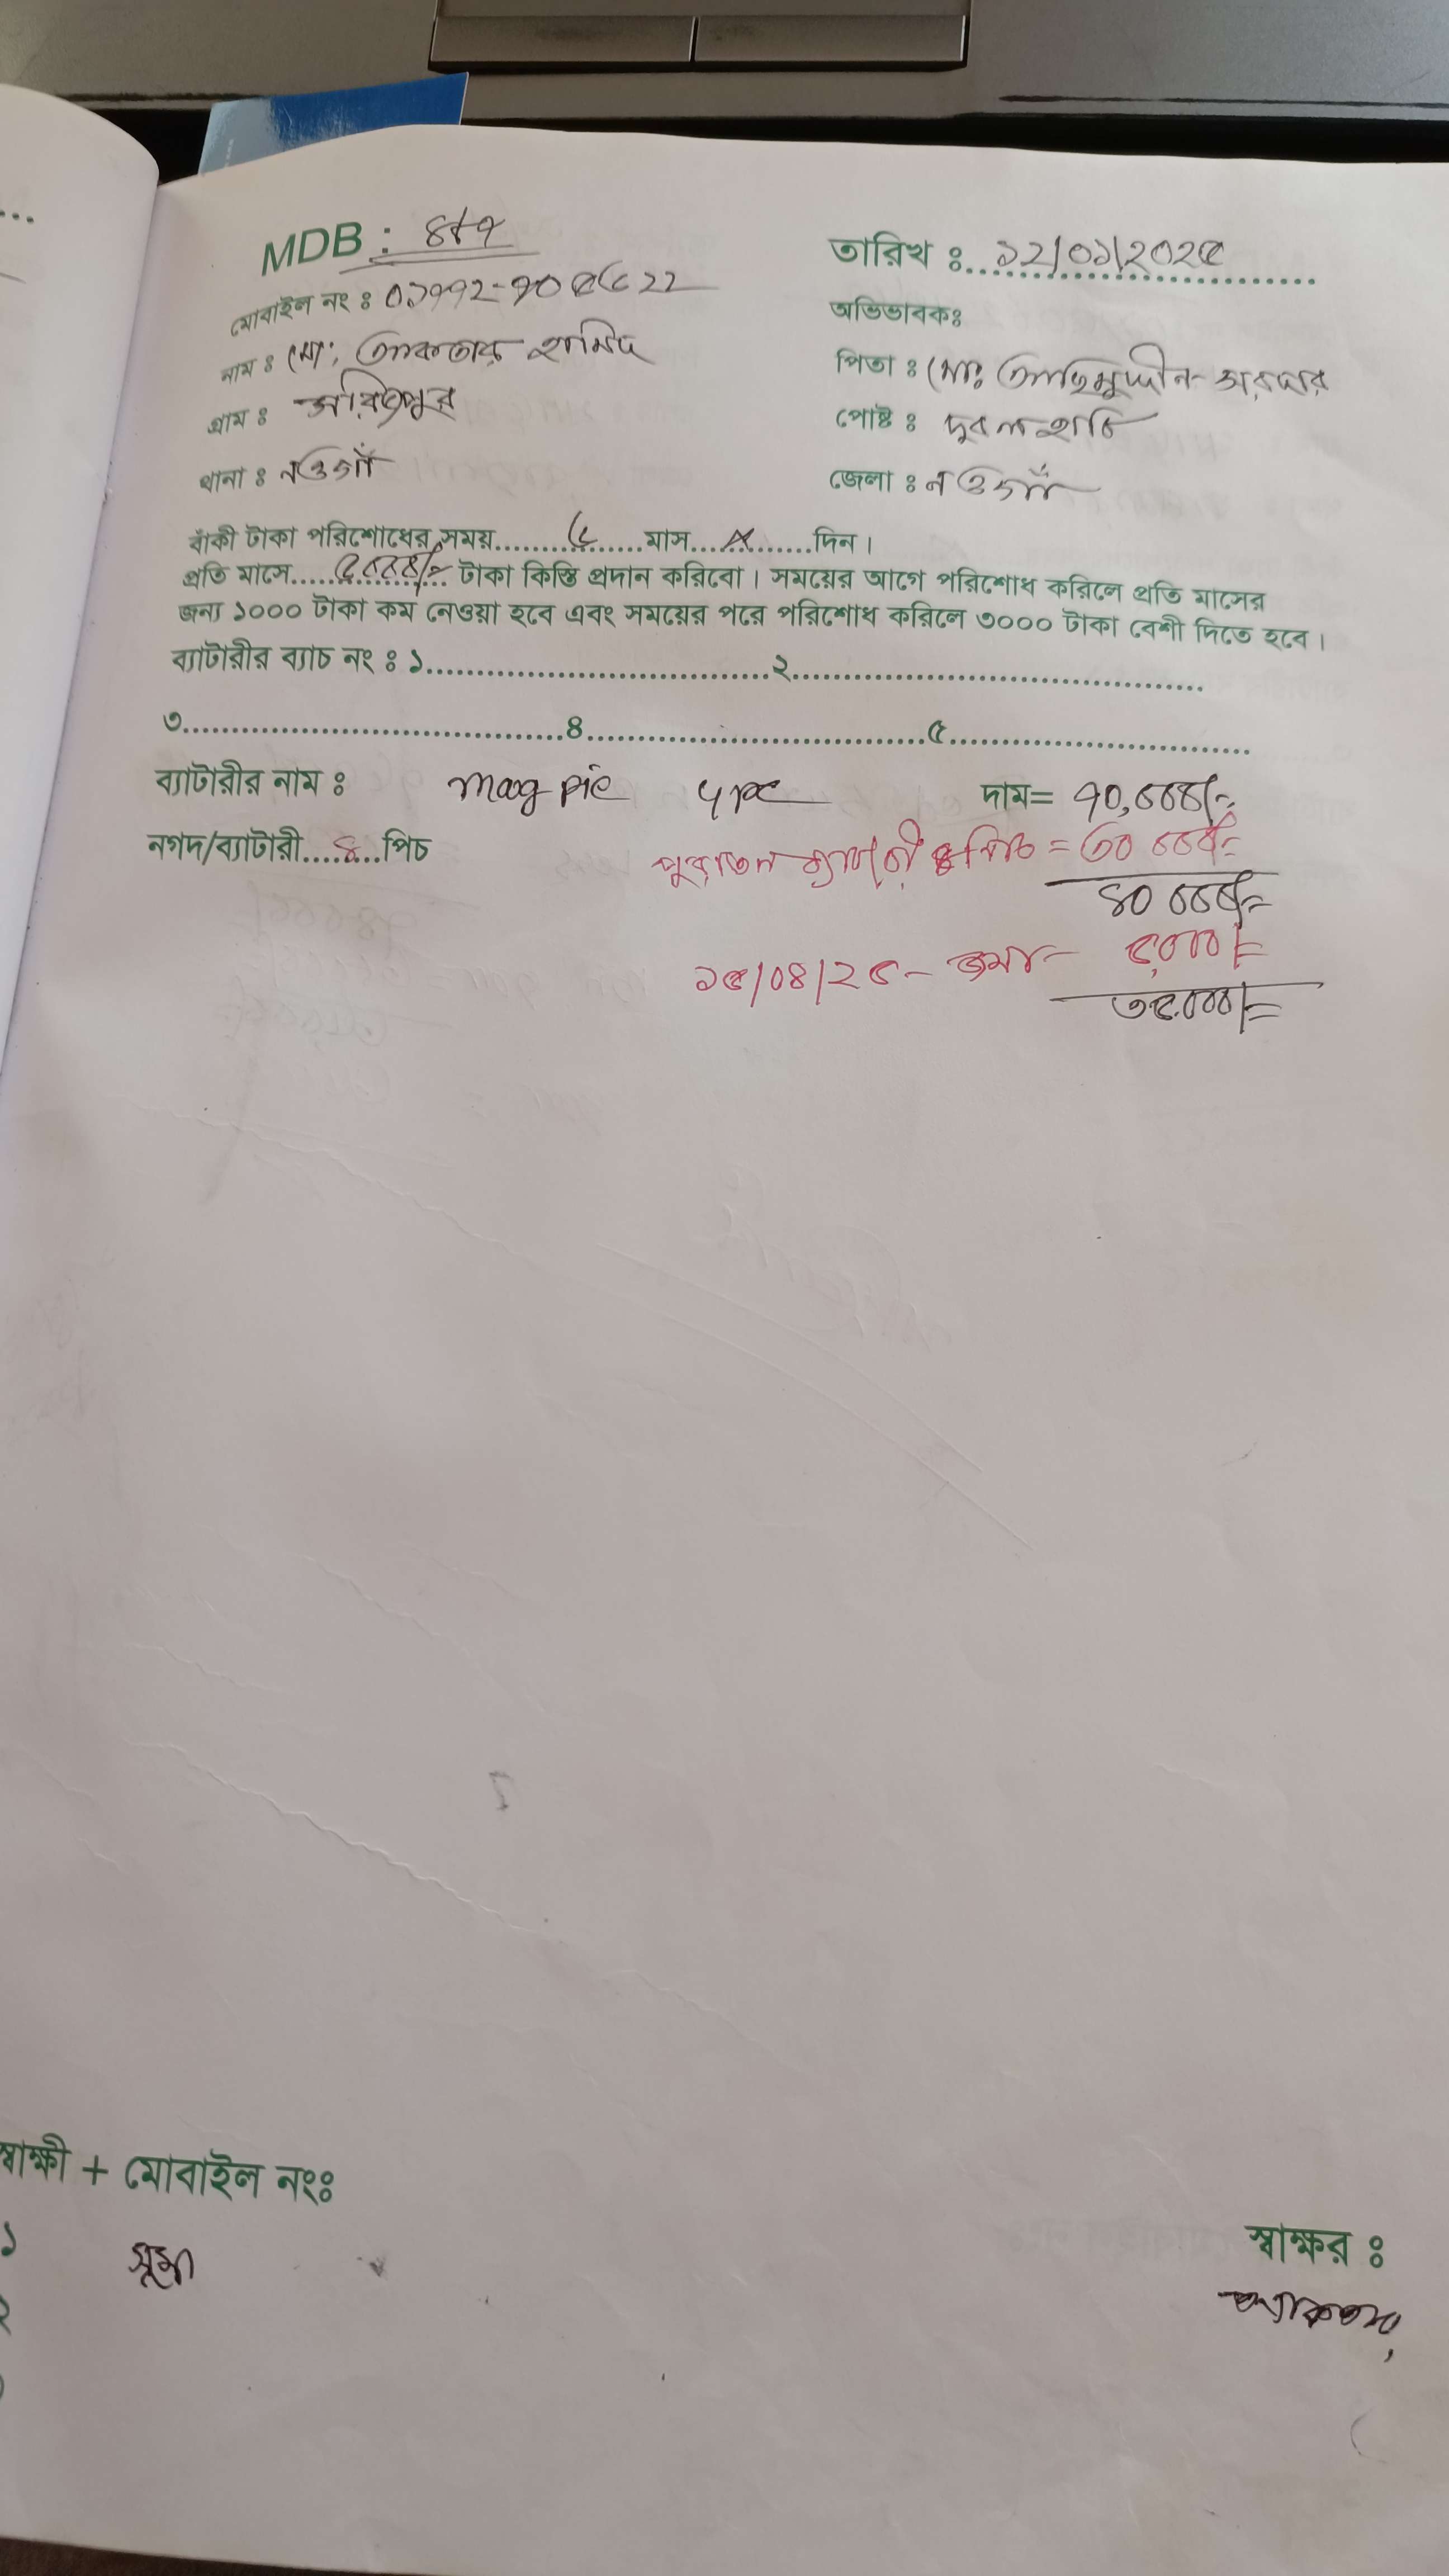 MDB : ৪৮৭
তারিখ ঃ ১২/০১/২০২৫
মোবাইল নং ঃ
অভিভাবকঃ
নাম ঃ মো: আকতার হামিদ
পিতা ঃ মো: সরদার
গ্রাম ঃ
পোষ্ট ঃ দুবলহাটি
থানা ঃ নওগাঁ
জেলা ঃ নওগাঁ
বাঁকী টাকা পরিশোধের সময়..........৫......মাস....×......দিন।
প্রতি মাসে.....৫০০০/=... টাকা কিস্তি প্রদান করিবো। সময়ের আগে পরিশোধ করিলে প্রতি মাসের
জন্য ১০০০ টাকা কম নেওয়া হবে এবং সময়ের পরে পরিশোধ করিলে ৩০০০ টাকা বেশী দিতে হবে।
ব্যাটারীর ব্যাচ নং ঃ ১....................................২....................................
৩....................................৪....................................৫....................................
ব্যাটারীর নাম ঃ Magpie 4pc দাম= ৭০,০০০/=
নগদ/ব্যাটারী....৪...পিচ পুরাতন ব্যাটারী ৪পিচ = ৩০০০০/=
৪০০০০/=
১৫/০৪/২৫- জমা- ৫,০০০/=
৩৫,০০০/=
স্বাক্ষী + মোবাইল নংঃ
স্বাক্ষর ঃ
১ সুমা
২